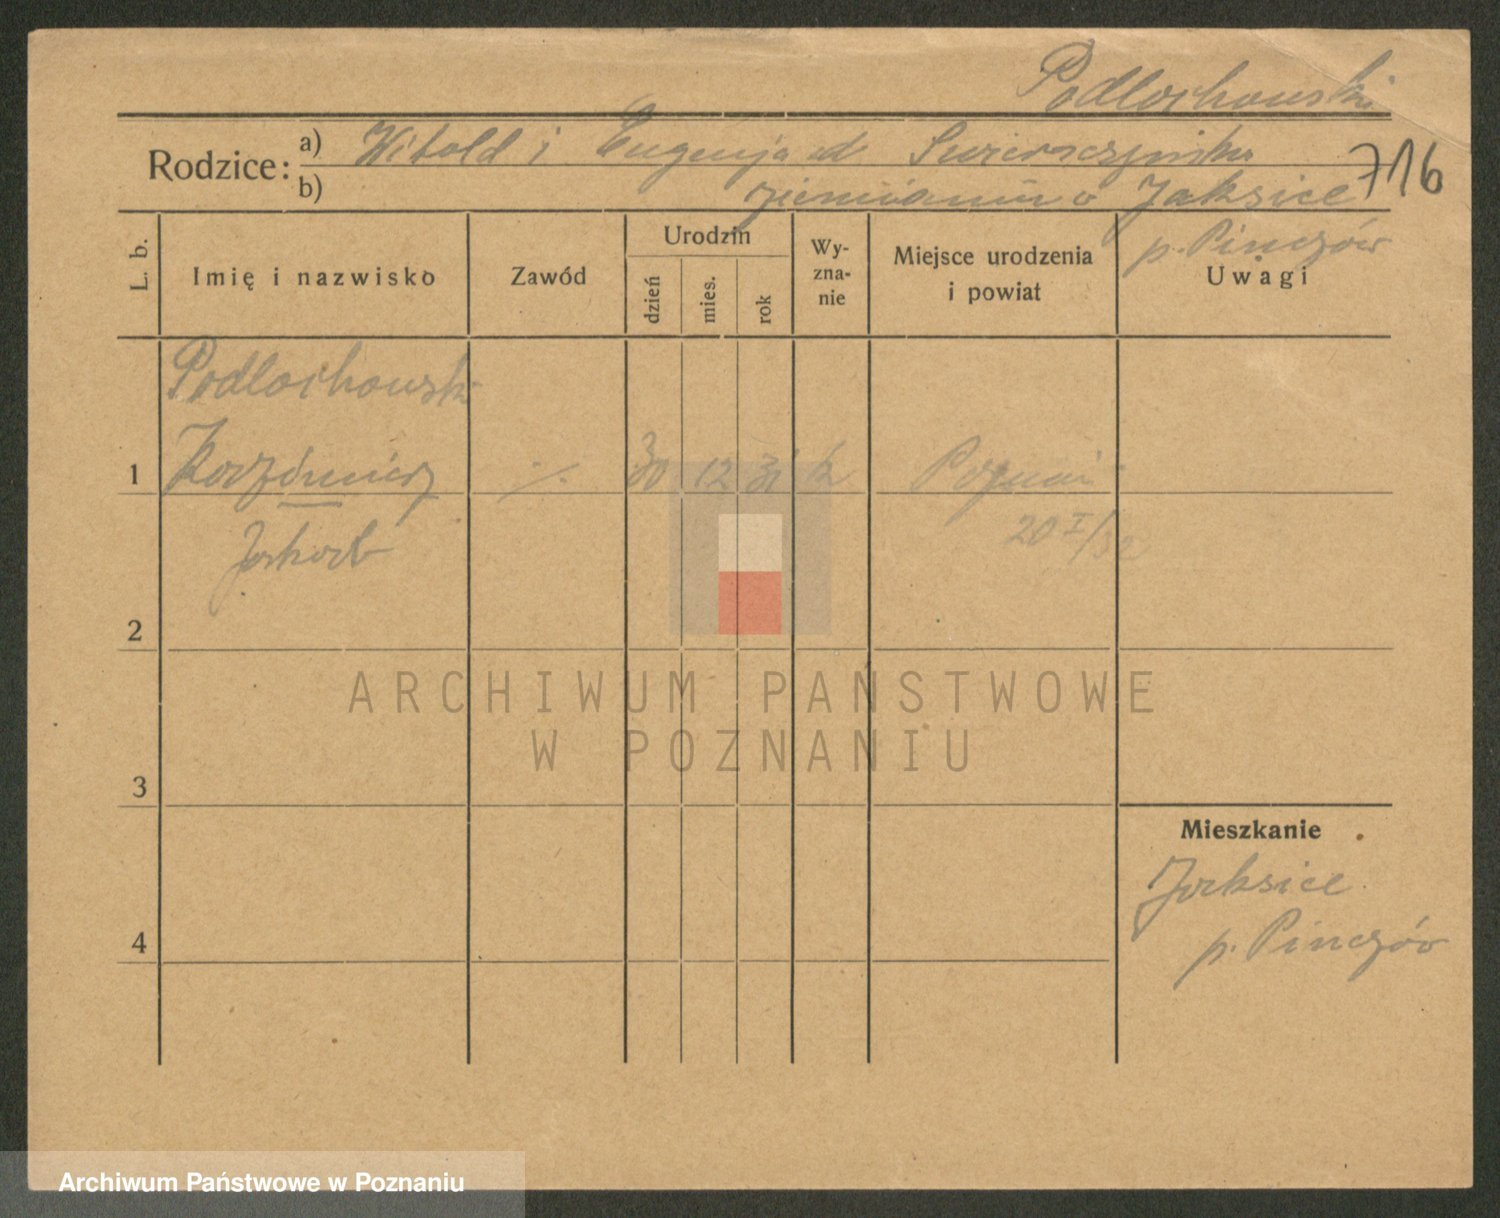 Podlochowski
Rodzice: a) Witold i Eugenja
b) ziemianin Jaksice 716
p. Pinczów
L. b.
Imię i nazwisko
Zawód
Urodzin
dzień
mies.
rok
Wy-
zna-
nie
Miejsce urodzenia
i powiat
Uwagi
Podlochowski
1 Kazimierz ./. 30 12 31 k Poznań
Jakób 20 I/32
2
3
4
Mieszkanie
Jaksice
p. Pinczów
ARCHIWUM PAŃSTWOWE
W POZNANIU
Archiwum Państwowe w Poznaniu